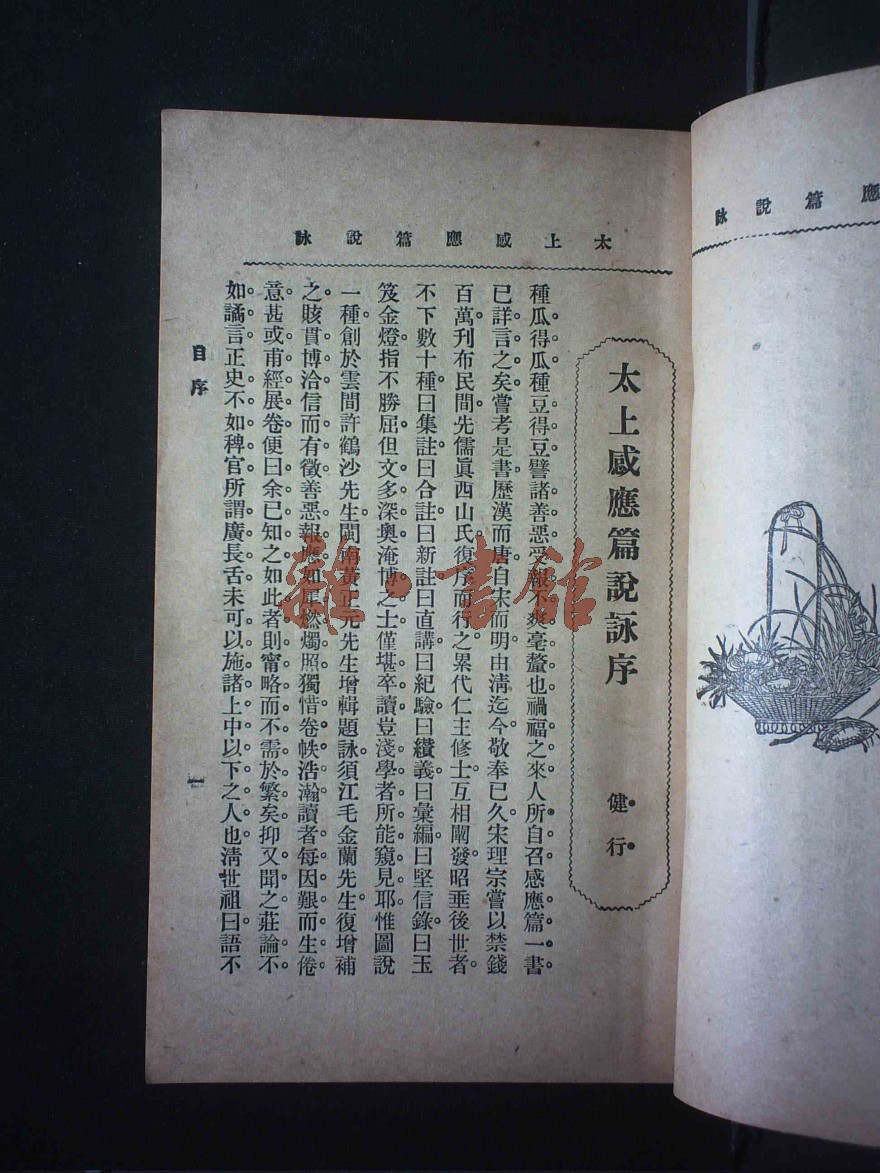 太上感應篇說詠
太上感應篇說詠序
健行
種瓜得瓜。種豆得豆。譬諸善惡受報。不爽毫釐也。禍福之來。人所自召。感應篇一書。
已詳言之矣。嘗考是書。歷漢而唐。自宋而明。由淸迄今。敬奉已久。宋理宗嘗以禁錢
百萬。刊布民間。先儒眞西山氏復序而行之。累代仁主修士。互相闡發。昭垂後世者。
不下數十種。曰集註。曰合註。曰新註。曰直講。曰紀驗。曰纘義。曰彙編。曰堅信錄。曰玉
笈金燈。指不勝屈。但文多深奧。淹博之士。僅堪卒讀。豈淺學者所能窺見耶。惟圖說
一種。創於雲間許鶴沙先生。閩南黃正元先生增輯題詠。須江毛金蘭先生。復增補
之。賅貫博洽。信而有徵。善惡報應。如犀燃燭照。獨惜卷帙浩瀚。讀者每因艱而生倦
意。甚或甫經展卷。便曰余已知之。如此者。則甯略而不需於繁矣。抑又聞之。莊論不
如譎言。正史不如稗官。所謂廣長舌。未可以施諸上中以下之人也。淸世祖曰。語不
目序
一
應篇說詠
雜·書館